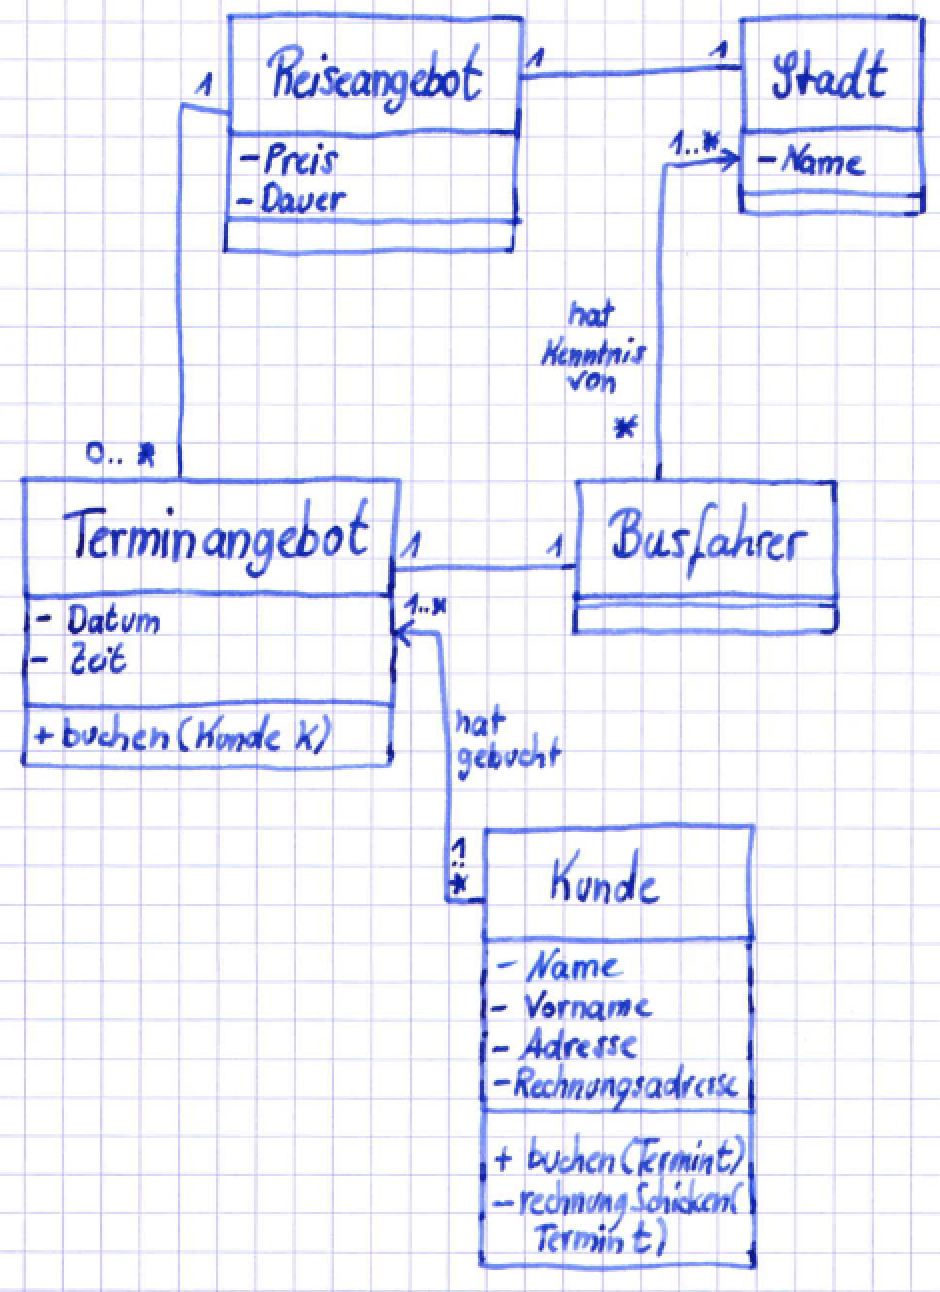 Reiseangebot
- Preis
- Dauer
1
1
1
Stadt
- Name
1..*
hat
Kenntnis
von
*
0..*
Terminangebot
- Datum
- Zeit
+ buchen (Kunde K)
1
1
Busfahrer
1..*
hat
gebucht
1..*
Kunde
- Name
- Vorname
- Adresse
- Rechnungsadresse
+ buchen (Termin t)
- rechnung Schicken(
Termin t)